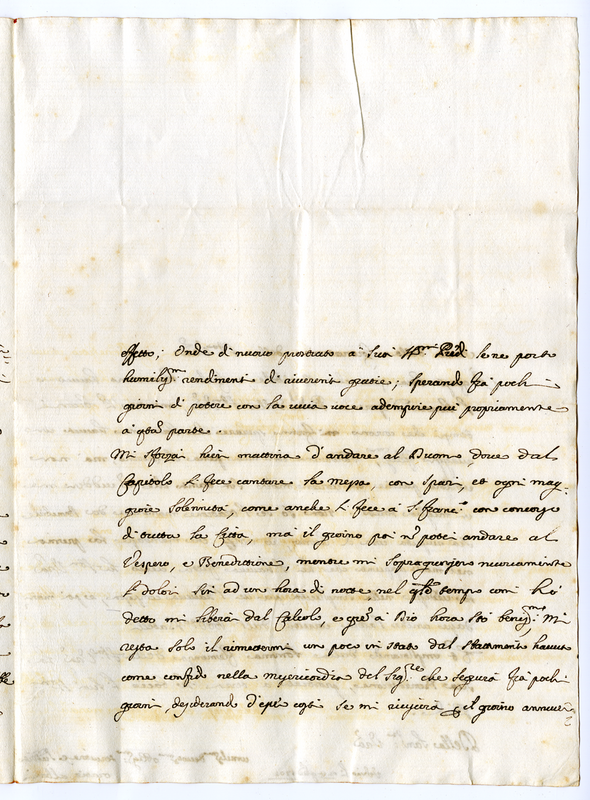 effetto; Onde di nuovo prostrato a Suoi SS.mi Piedi le ne porto
humiliss.mi rendimenti di riverenti gratie; sperando frà pochi
giorni di potere con la viva voce adempire piu propriamente
a q.ta parte.
Mi sforzai hieri mattina d'andare al Duomo, dove dal
Capitolo si fece cantare la messa, con spari, et ogni mag-
giore solennita, come anche si fece à S. Franc.o con concorso
di tutta la Città, mà il giorno poi nō potei andare al
Vespero, e Benedittione, mentre mi sopragiunsero nuovamente
i dolori sin ad un hora di notte, nel q.le tempo come hò
detto mi liberai dal Calcolo, e gra' à Dio hora stò beniss.mo Mi
resta solo il rimettermi un poco in stato dal sbattimento havuto
come confido nella misericordia del Sig.re che seguirà frà pochi
giorni, desiderando d'esser costi se mi riuscirà il giorno